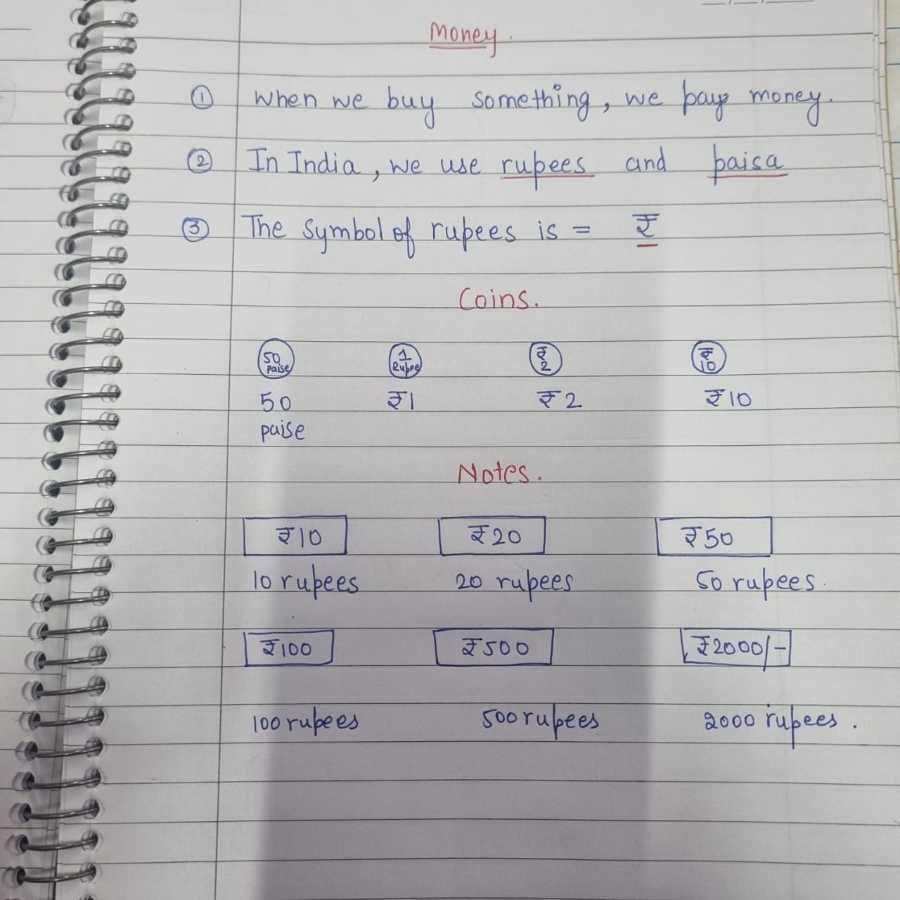 Money.
① When we buy something, we pay money.
② In India, we use rupees and paisa
③ The symbol of rupees is = ₹
Coins.
50 paise 1 Rupee ₹ 2 ₹ 10
50 paise ₹1 ₹2 ₹10
Notes.
₹10 ₹20 ₹50
10 rupees 20 rupees 50 rupees.
₹100 ₹500 ₹2000/-
100 rupees 500 rupees 2000 rupees.